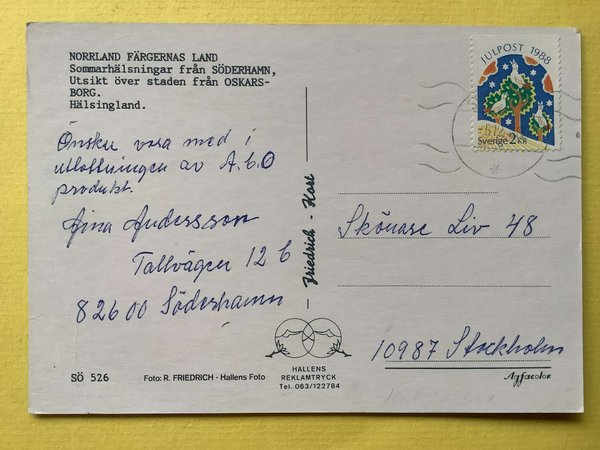 NORRLAND FÄRGERNAS LAND
Sommarhälsningar från SÖDERHAMN,
Utsikt över staden från OSKARS-
BORG.
Hälsingland.
Önskar vara med i
utlottningen av A.C.O
produkt.
Andersson
Tallvägen 12 C
82600 Söderhamn
SÖ 526
Foto: R. FRIEDRICH - Hallens Foto
Friedrich - Kort
HALLENS
REKLAMTRYCK
Tel. 063/122784
JULPOST 1988
Sverige 2 KR
Skönare Liv 48
10987 Stockholm
Agfacolor